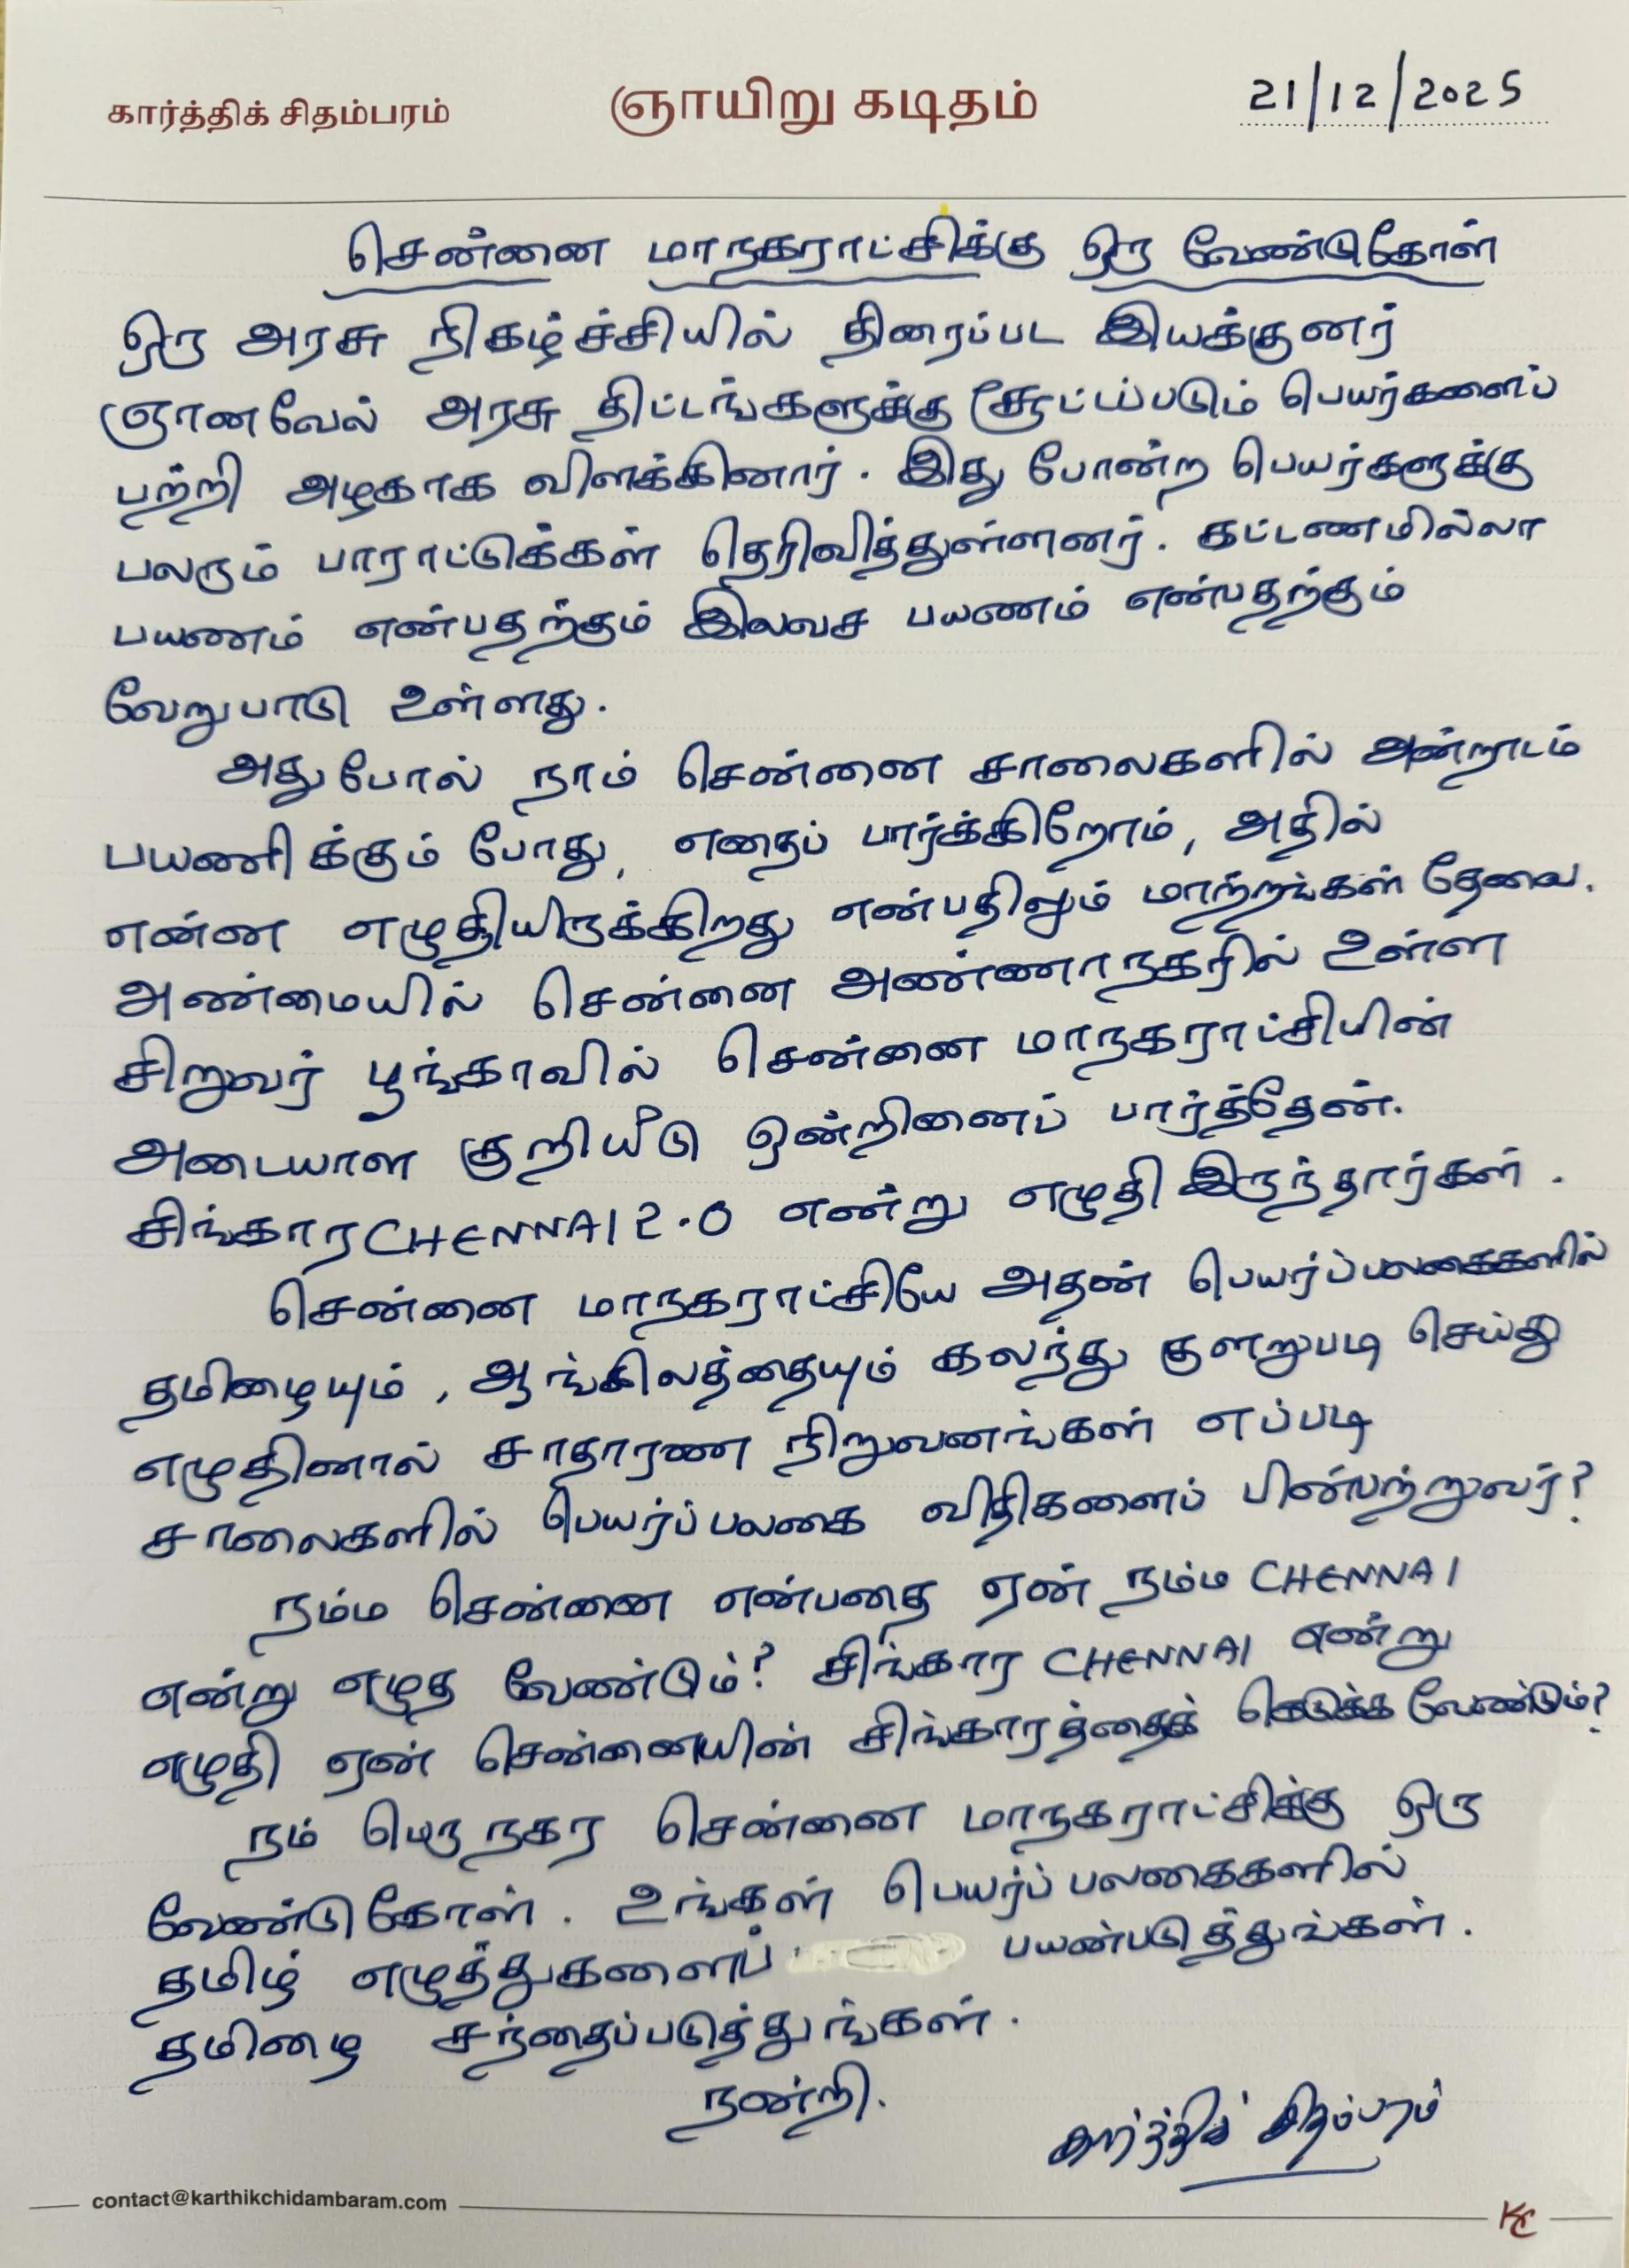 கார்த்திக் சிதம்பரம்
ஞாயிறு கடிதம்
21/12/2025
சென்னை மாநகராட்சிக்கு ஒரு வேண்டுகோள்
ஒரு அரசு நிகழ்ச்சியில் திரைப்பட இயக்குனர்
ஞானவேல் அரசு திட்டங்களுக்கு சூட்டப்படும் பெயர்களைப்
பற்றி அழகாக விளக்கினார். இது போன்ற பெயர்களுக்கு
பலரும் பாராட்டுக்கள் தெரிவித்துள்ளனர். கட்டணமில்லா
பயணம் என்பதற்கும் இலவச பயணம் என்பதற்கும்
வேறுபாடு உள்ளது.
அது போல் நாம் சென்னை சாலைகளில் அன்றாடம்
பயணிக்கும் போது, எதைப் பார்க்கிறோம், அதில்
என்ன எழுதியிருக்கிறது என்பதிலும் மாற்றங்கள் தேவை.
அண்மையில் சென்னை அண்ணாநகரில் உள்ள
சிறுவர் பூங்காவில் சென்னை மாநகராட்சியின்
அடையாள குறியீடு ஒன்றினைப் பார்த்தேன்.
சிங்கார CHENNAI 2.0 என்று எழுதி இருந்தார்கள்.
சென்னை மாநகராட்சியே அதன் பெயர்ப்பலகைகளில்
தமிழையும், ஆங்கிலத்தையும் கலந்து குளறுபடி செய்து
எழுதினால் சாதாரண நிறுவனங்கள் எப்படி
சாலைகளில் பெயர்ப்பலகை விதிகளைப் பின்பற்றுவர்?
நம்ம சென்னை என்பதை ஏன் நம்ம CHENNAI
என்று எழுத வேண்டும்? சிங்கார CHENNAI என்று
எழுதி ஏன் சென்னையின் சிங்காரத்தைக் கெடுக்க வேண்டும்?
நம் பெருநகர சென்னை மாநகராட்சிக்கு ஒரு
வேண்டுகோள். உங்கள் பெயர்ப் பலகைகளில்
தமிழ் எழுத்துகளைப் பயன்படுத்துங்கள்.
தமிழை சந்தைப்படுத்துங்கள்.
நன்றி.
கார்த்திக் சிதம்பரம்
contact@karthikchidambaram.com
KC